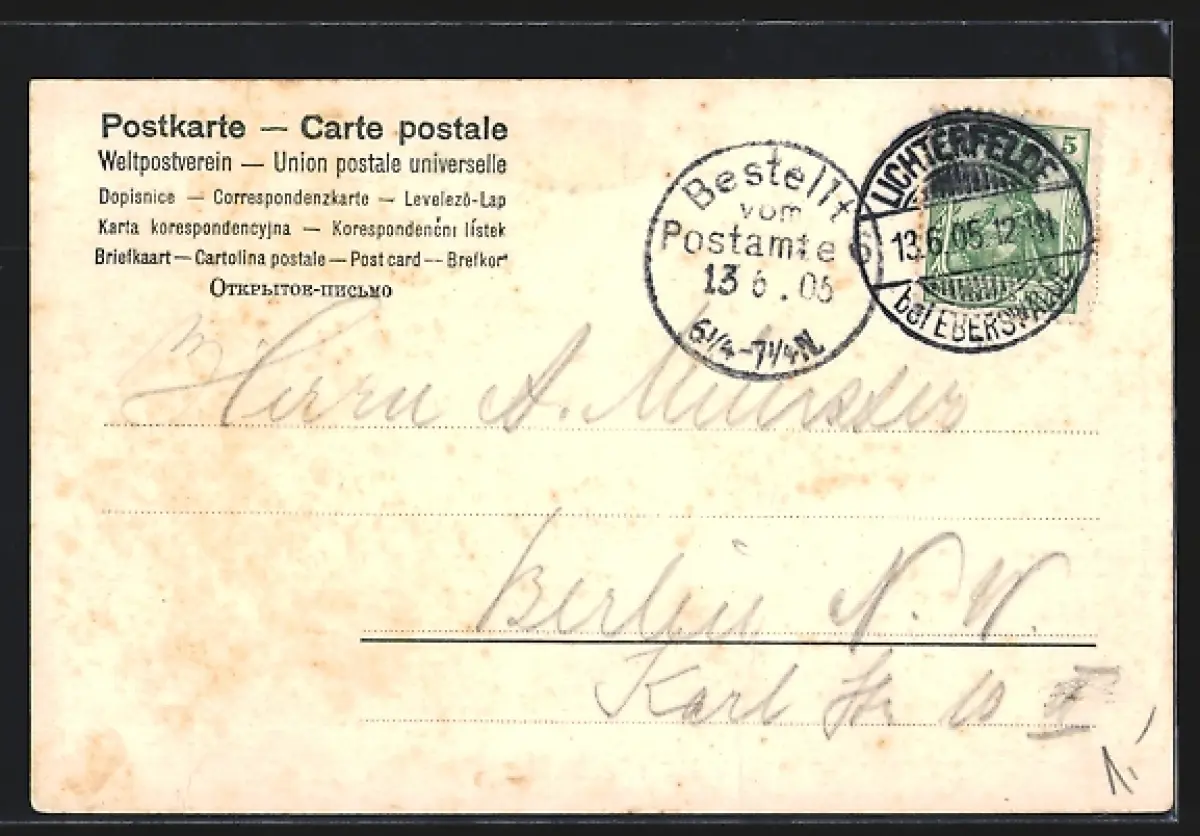 Postkarte — Carte postale
Weltpostverein — Union postale universelle
Dopisnice — Correspondenzkarte — Levelező-Lap
Karta korespondencyjna — Korespondenční lístek
Briefkaart — Cartolina postale — Post card — Brefkort
Открытое-письмо
Bestellt
vom
Postamte 6
13 6 . 05
6 1/4 - 7 1/4 N
LICHTERFELDE
13.6.05. 12-1N
bei EBERSWALDE
5
Herrn A.
Berlin N. W.
Karl Str 10 II
1.-